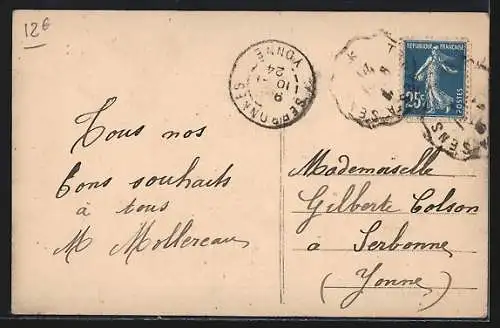 12€
SERBONNES
YONNE
10-
9
24
REPUBLIQUE FRANÇAISE
25c
POSTES
SENS
Tous nos
bons souhaits
à tous
M Mollereau
Mademoiselle
Gilberte Colson
à Serbonne
(Yonne)